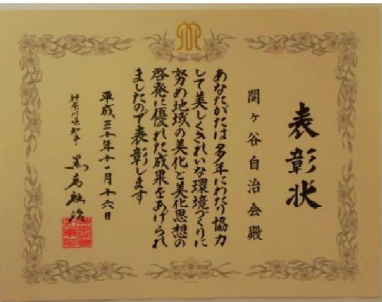 表彰状
関ヶ谷自治会殿
あなたがたは多年にわたり協力
して美しくきれいな環境づくりに
努め地域の美化と美化思想の
啓発に優れた成果をあげられ
ましたので表彰します
平成三十年十一月十六日
神奈川県知事 黒岩祐治